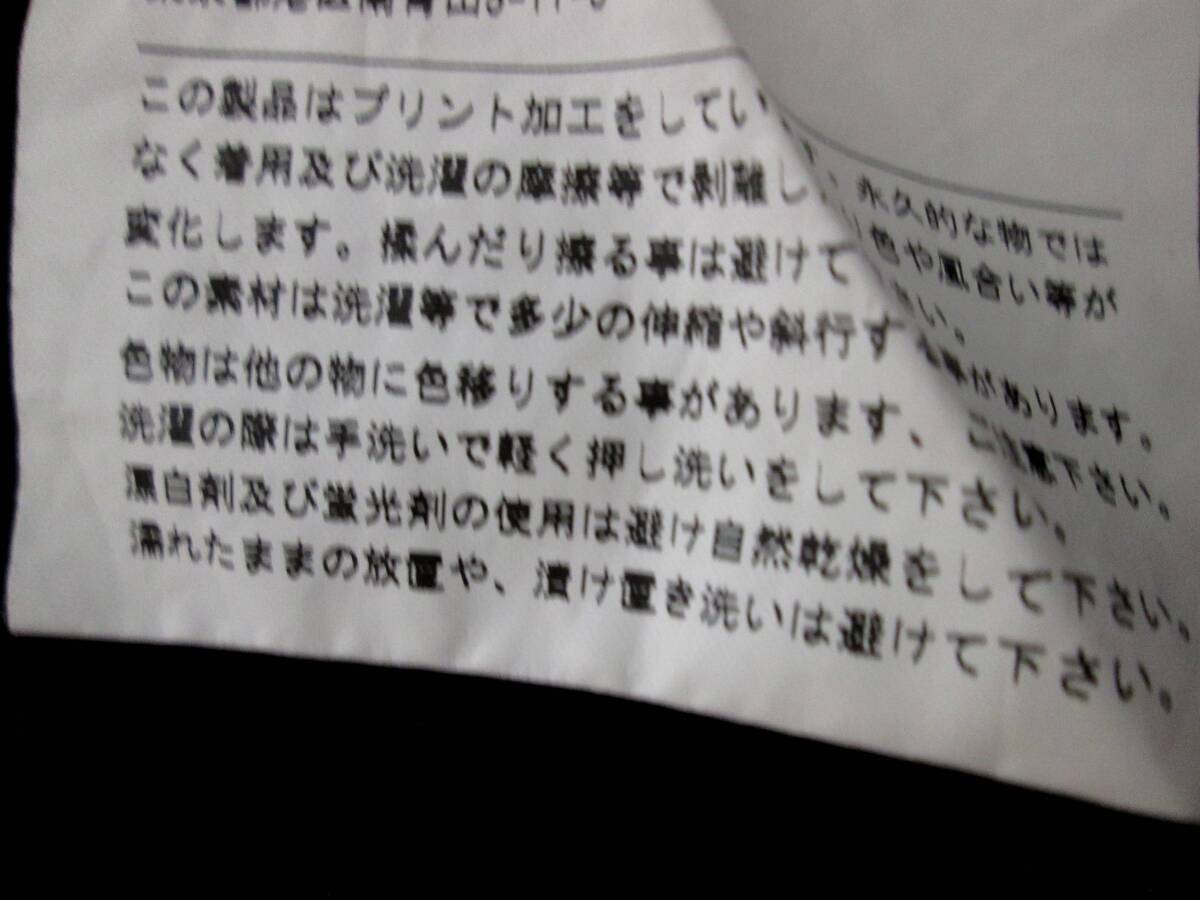 この製品はプリント加工をしてい 永久的な物では
なく着用及び洗濯の摩擦等で剥離し 色や風合い等が
変化します。揉んだり擦る事は避けて さい。
この素材は洗濯等で多少の伸縮や斜行す 等があります。
色物は他の物に色移りする事があります、ご注意下さい。
洗濯の際は手洗いで軽く押し洗いをして下さい。
漂白剤及び蛍光剤の使用は避け自然乾燥をして下さい。
濡れたままの放置や、漬け置き洗いは避けて下さい。